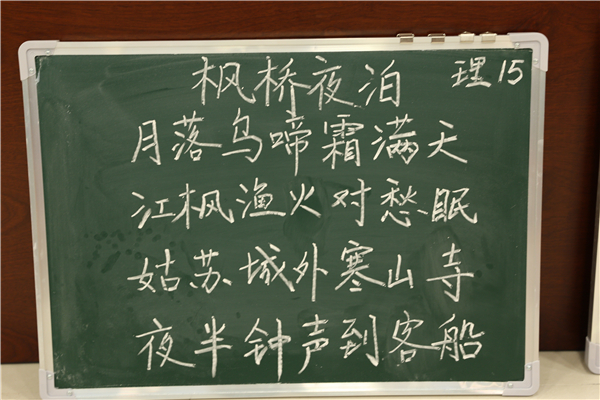 枫桥夜泊
理15
月落乌啼霜满天
江枫渔火对愁眠
姑苏城外寒山寺
夜半钟声到客船